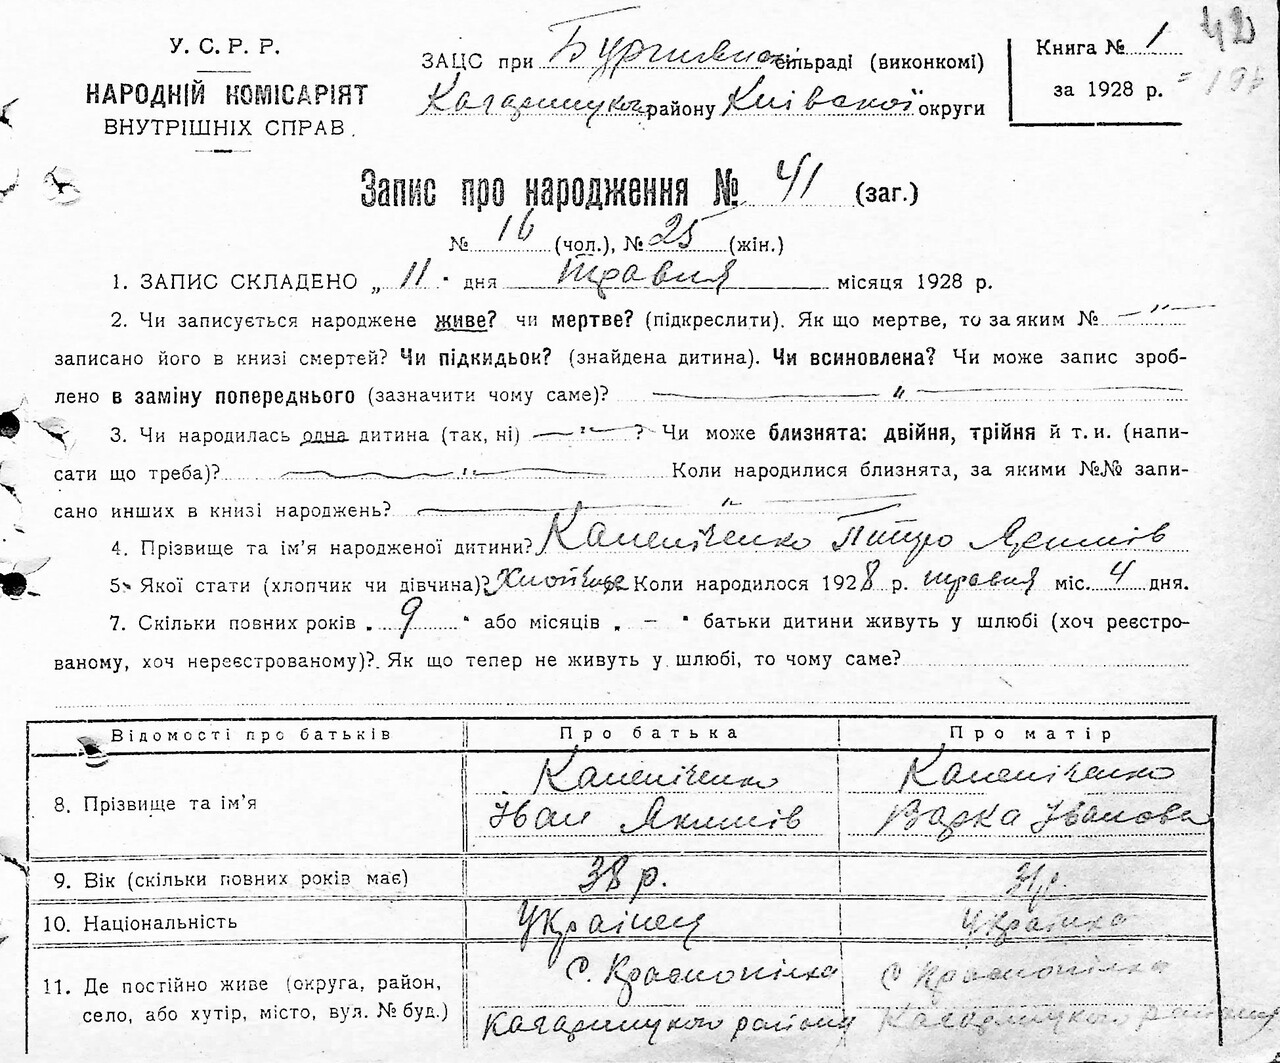 У. С. Р. Р.
НАРОДНІЙ КОМІСАРІЯТ
ВНУТРІШНІХ СПРАВ.
ЗАЦС при сільраді (виконкомі)
Кагарлицького району Київської округи
Книга № 1
за 1928 р.
42
Запис про народження № 41 (заг.)
№ 16 (чол.), № 25 (жін.)
1. ЗАПИС СКЛАДЕНО „ 11 " дня травня місяця 1928 р.
2. Чи записується народжене живе? чи мертве? (підкреслити). Як що мертве, то за яким № — " —
записано його в книзі смертей? Чи підкидьок? (знайдена дитина). Чи всиновлена? Чи може запис зроб-
лено в заміну попереднього (зазначити чому саме)? — " —
3. Чи народилась одна дитина (так, ні) — " — ? Чи може близнята: двійня, трійня й т. и. (напи-
сати що треба)? — " — Коли народилися близнята, за якими №№ запи-
сано инших в книзі народжень? — " —
4. Прізвище та ім'я народженої дитини? Петро Якимів
5. Якої стати (хлопчик чи дівчина)? Хлопчик Коли народилося 1928 р. травня міс. 4 дня.
7. Скільки повних років „ 9 " або місяців „ — " батьки дитини живуть у шлюбі (хоч реєстро-
ваному, хоч нереєстрованому)?. Як що тепер не живуть у шлюбі, то чому саме?
Відомості про батьків Про батька Про матір
8. Прізвище та ім'я
Іван Якимів Варка Іванова
9. Вік (скільки повних років має) 38 р.
10. Національність Українец Українка
11. Де постійно живе (округа, район, село, або хутір, місто, вул. № буд.) с. Краснопілка с. Краснопілка
Кагарлицкого району Кагарлицкого району